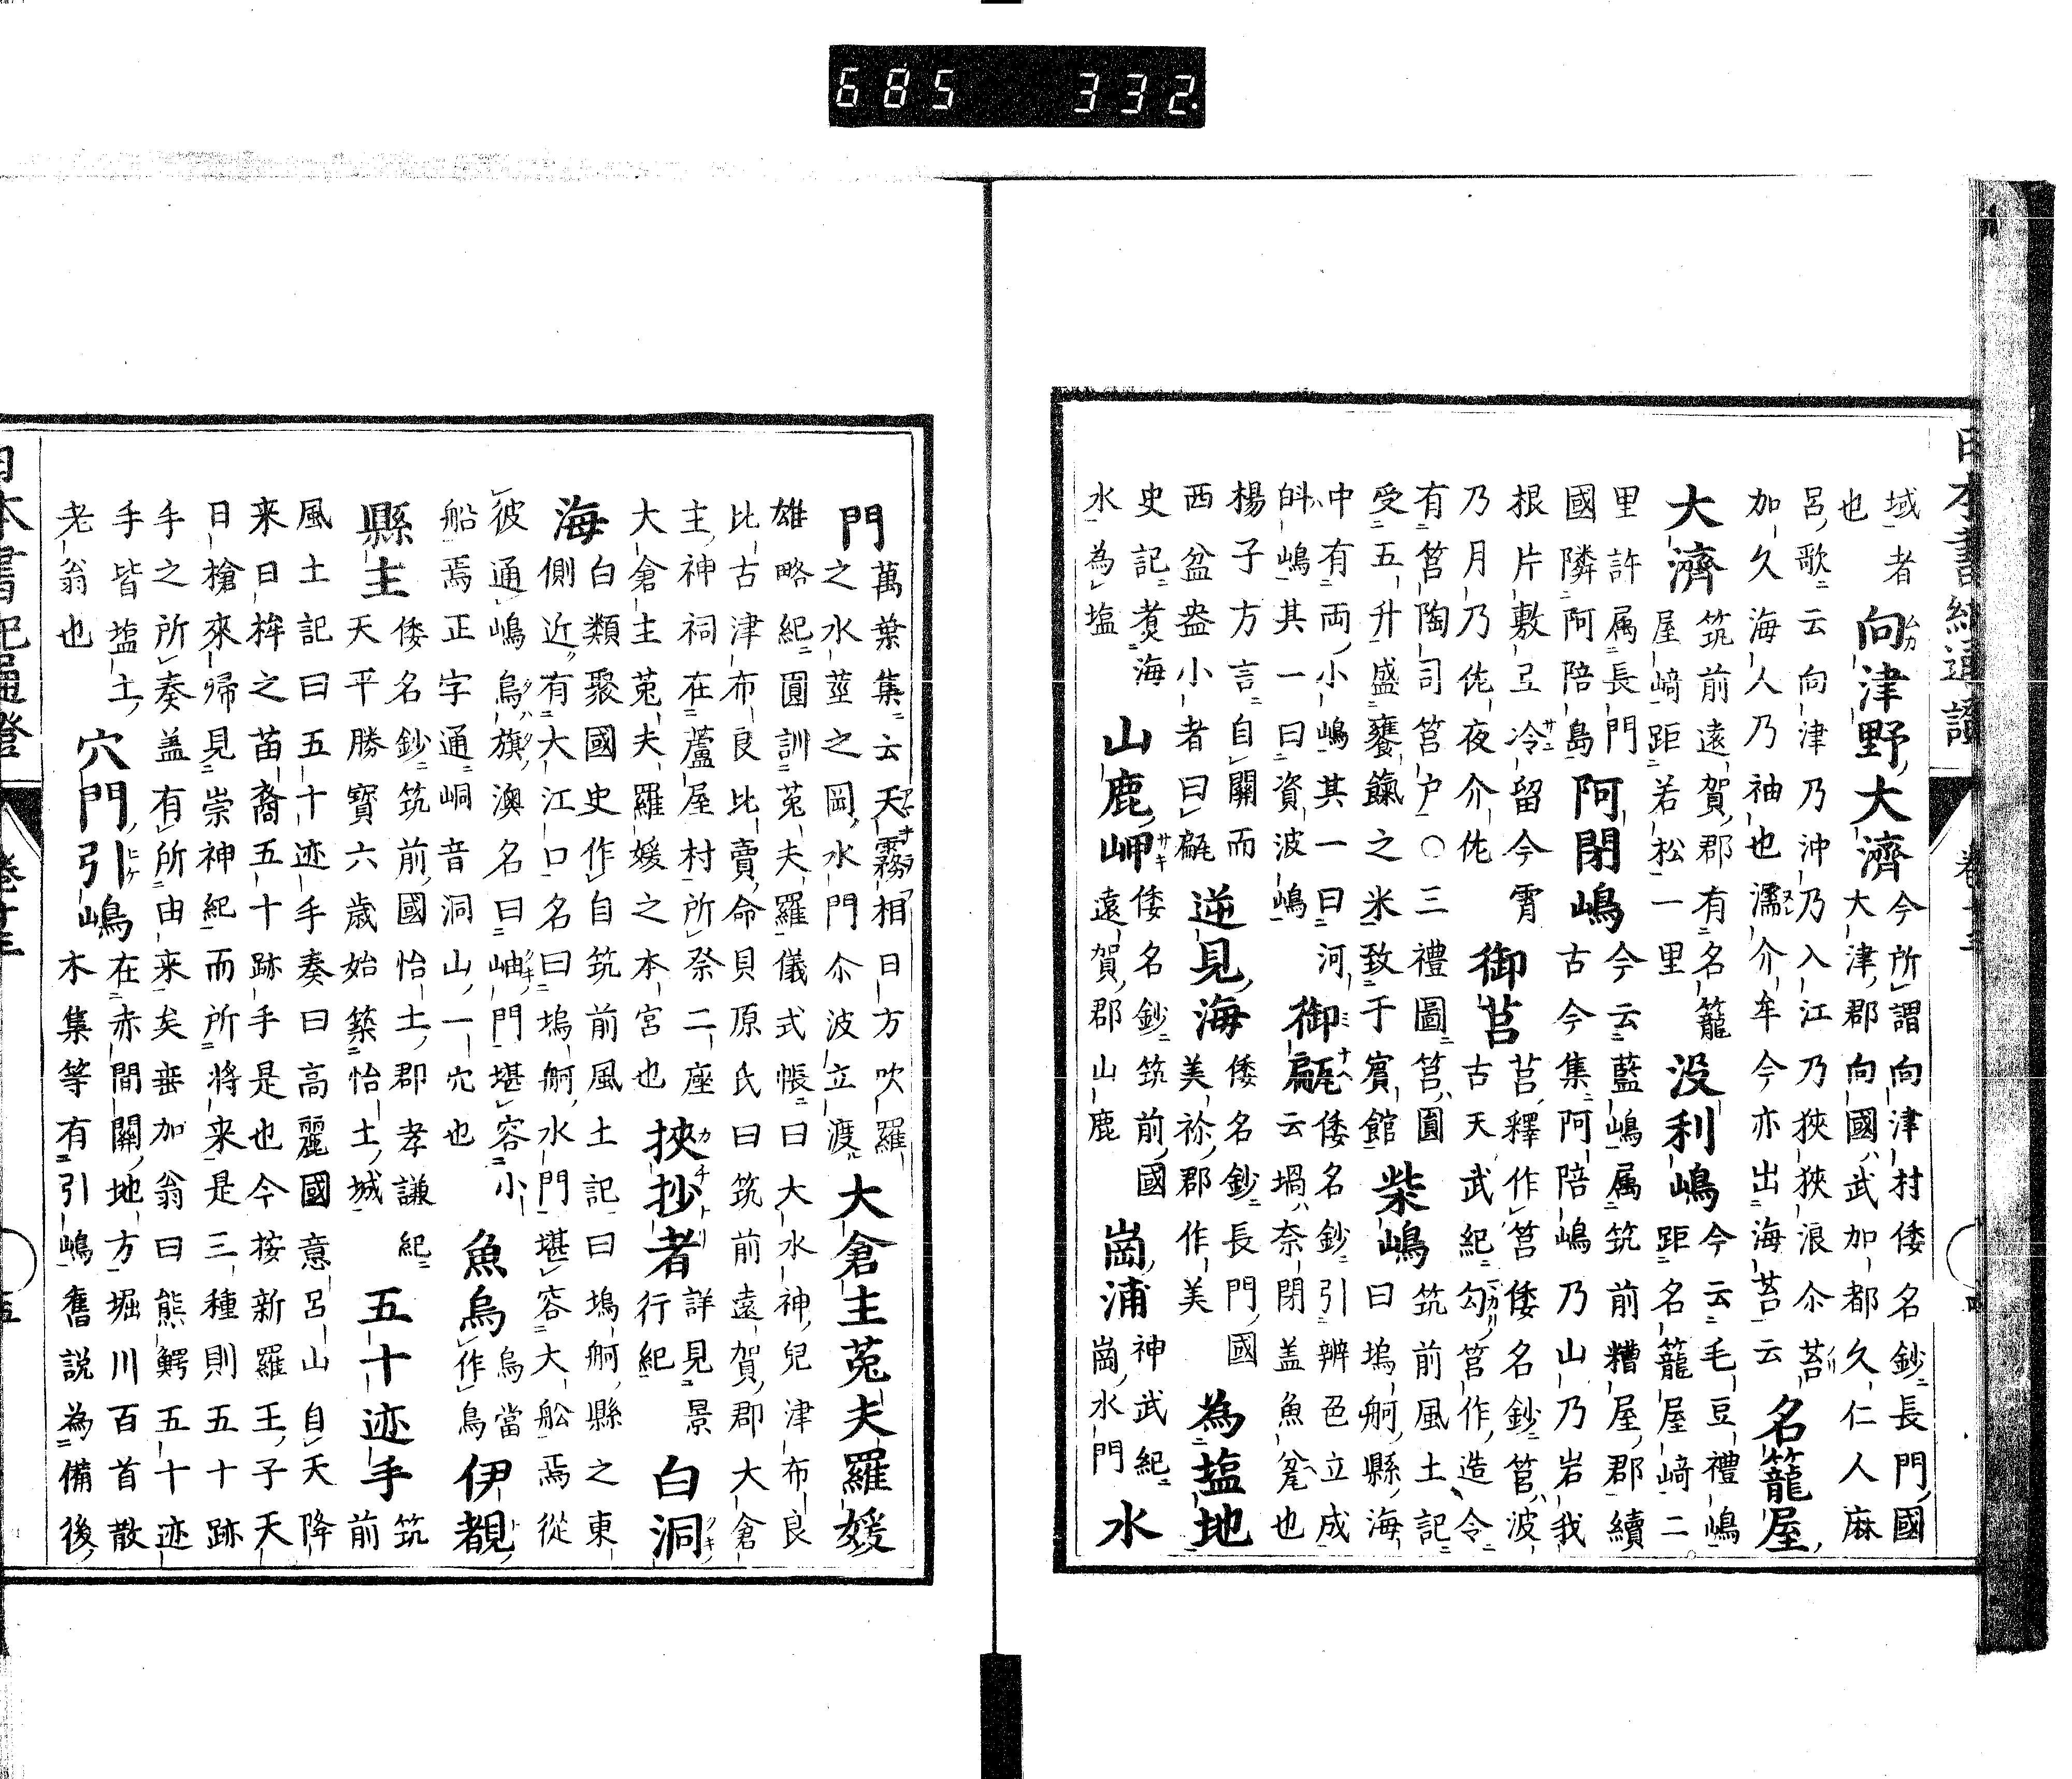 日本書紀通證
域者
也
向津野大濟
今所謂向津村倭名鈔長門國
大津郡向國武加都久仁人麻
呂歌云向津乃沖乃入江乃狹狹浪尒苔
加久海人乃袖也濡介牟今亦出海苔云
名籠屋
大濟
筑前遠賀郡有名籠
屋﨑距若松一里
没利嶋
今云毛豆禮嶋
距名籠屋﨑二
里許属長門
國隣阿陪島
阿閉嶋
今云藍嶋属筑前糟屋郡續
古今集阿陪嶋乃山乃岩我
根片敷弖冷留今霄
乃月乃佐夜介佐
御筥
筥釋作筥倭名鈔筥波
古天武紀勾筥作造令
有筥陶司筥户〇三禮圖筥圓
受五升盛饔餼之米致于賓館
柴嶋
筑前風土記
曰塢舸縣海
中有両小嶋其一曰河
㪷嶋其一曰資波嶋
御甂
倭名鈔引辨色立成
云堝奈閉盖魚瓫也
楊子方言自關而
西盆盎小者曰甂
逆見海
倭名鈔長門國
美祢郡作美
為塩地
史記煑海
水為塩
山鹿岬
倭名鈔筑前國
遠賀郡山鹿
崗浦
神武紀
崗水門
水
門
萬葉集云天霧相日方吹羅
之水莖之岡水門尒波立渡
大倉主菟夫羅媛
雄略紀圓訓菟夫羅儀式帳曰大水神兒津布良
比古津布良比賣命貝原氏曰筑前遠賀郡大倉
主神祠在蘆屋村所祭二座
大倉主菟夫羅媛之本宮也
挾抄者
詳見景
行紀
白洞
海
白類聚國史作自筑前風土記曰塢舸縣之東
側近有大江口名曰塢舸水門堪容大舩焉從
彼通嶋鳥旗澳名曰岫門堪容小
船焉正字通峒音洞山一穴也
魚烏
烏當
作鳥
伊覩
縣主
倭名鈔筑前國怡土郡孝謙紀
天平勝寶六歳始築怡土城
五十迹手
筑
前
風土記曰五十迹手奏曰高麗國意呂山自天降
来日桙之苗裔五十跡手是也今按新羅王子天
日槍來歸見崇神紀而所將来是三種則五十跡
手之所奏盖有所由来矣垂加翁曰熊鰐五十迹
手皆塩土
老翁也
穴門引嶋
在赤間關地方堀川百首散
木集等有引嶋舊説為備後
日本書紀通證
685 332